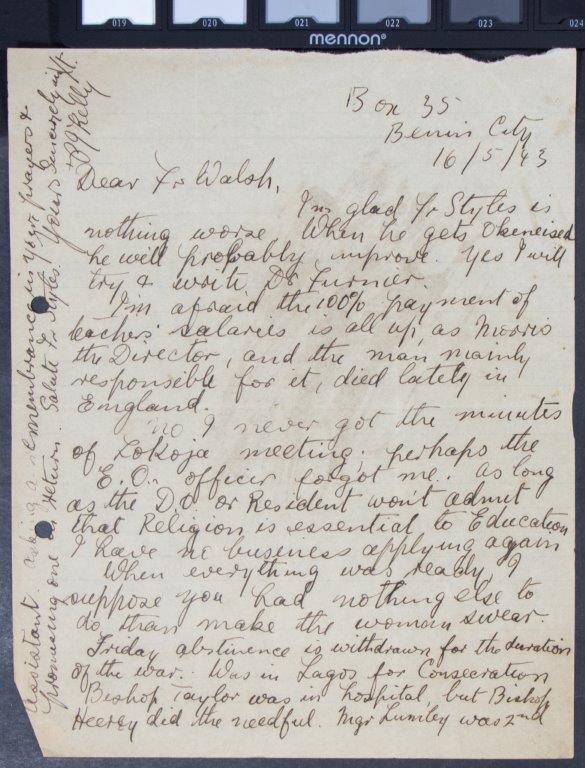 019 020 021 022 023 024
mennon
Box 35
Benin City
16/5/43
Dear Fr Walsh,
I'm glad Fr Styles is
nothing worse. When he gets Okeneised
he will probably improve. Yes I will
try & write Dr Turner.
I'm afraid the 100% payment of
teachers' salaries is all up, as Morris
the Director, and the man mainly
responsible for it, died lately in
England.
No I never got the minutes
of Lokoja meeting; perhaps the
E.O. officer forgot me. As long
as the D.O. or Resident won't admit
that Religion is essential to Education
I have no business applying again
When everything was ready, I
suppose you had nothing else to
do than make the woman swear.
Friday abstinence is withdrawn for the duration
of the war. Was in Lagos for Consecration
Bishop Taylor was in hospital, but Bishop
Heerey did the needful. Mgr Lumley was 2nd
assistant. Asking a remembrance in your prayers &
promising one in return. Salute Fr Styles. Yours sincerely in Xt.
P J Kelly